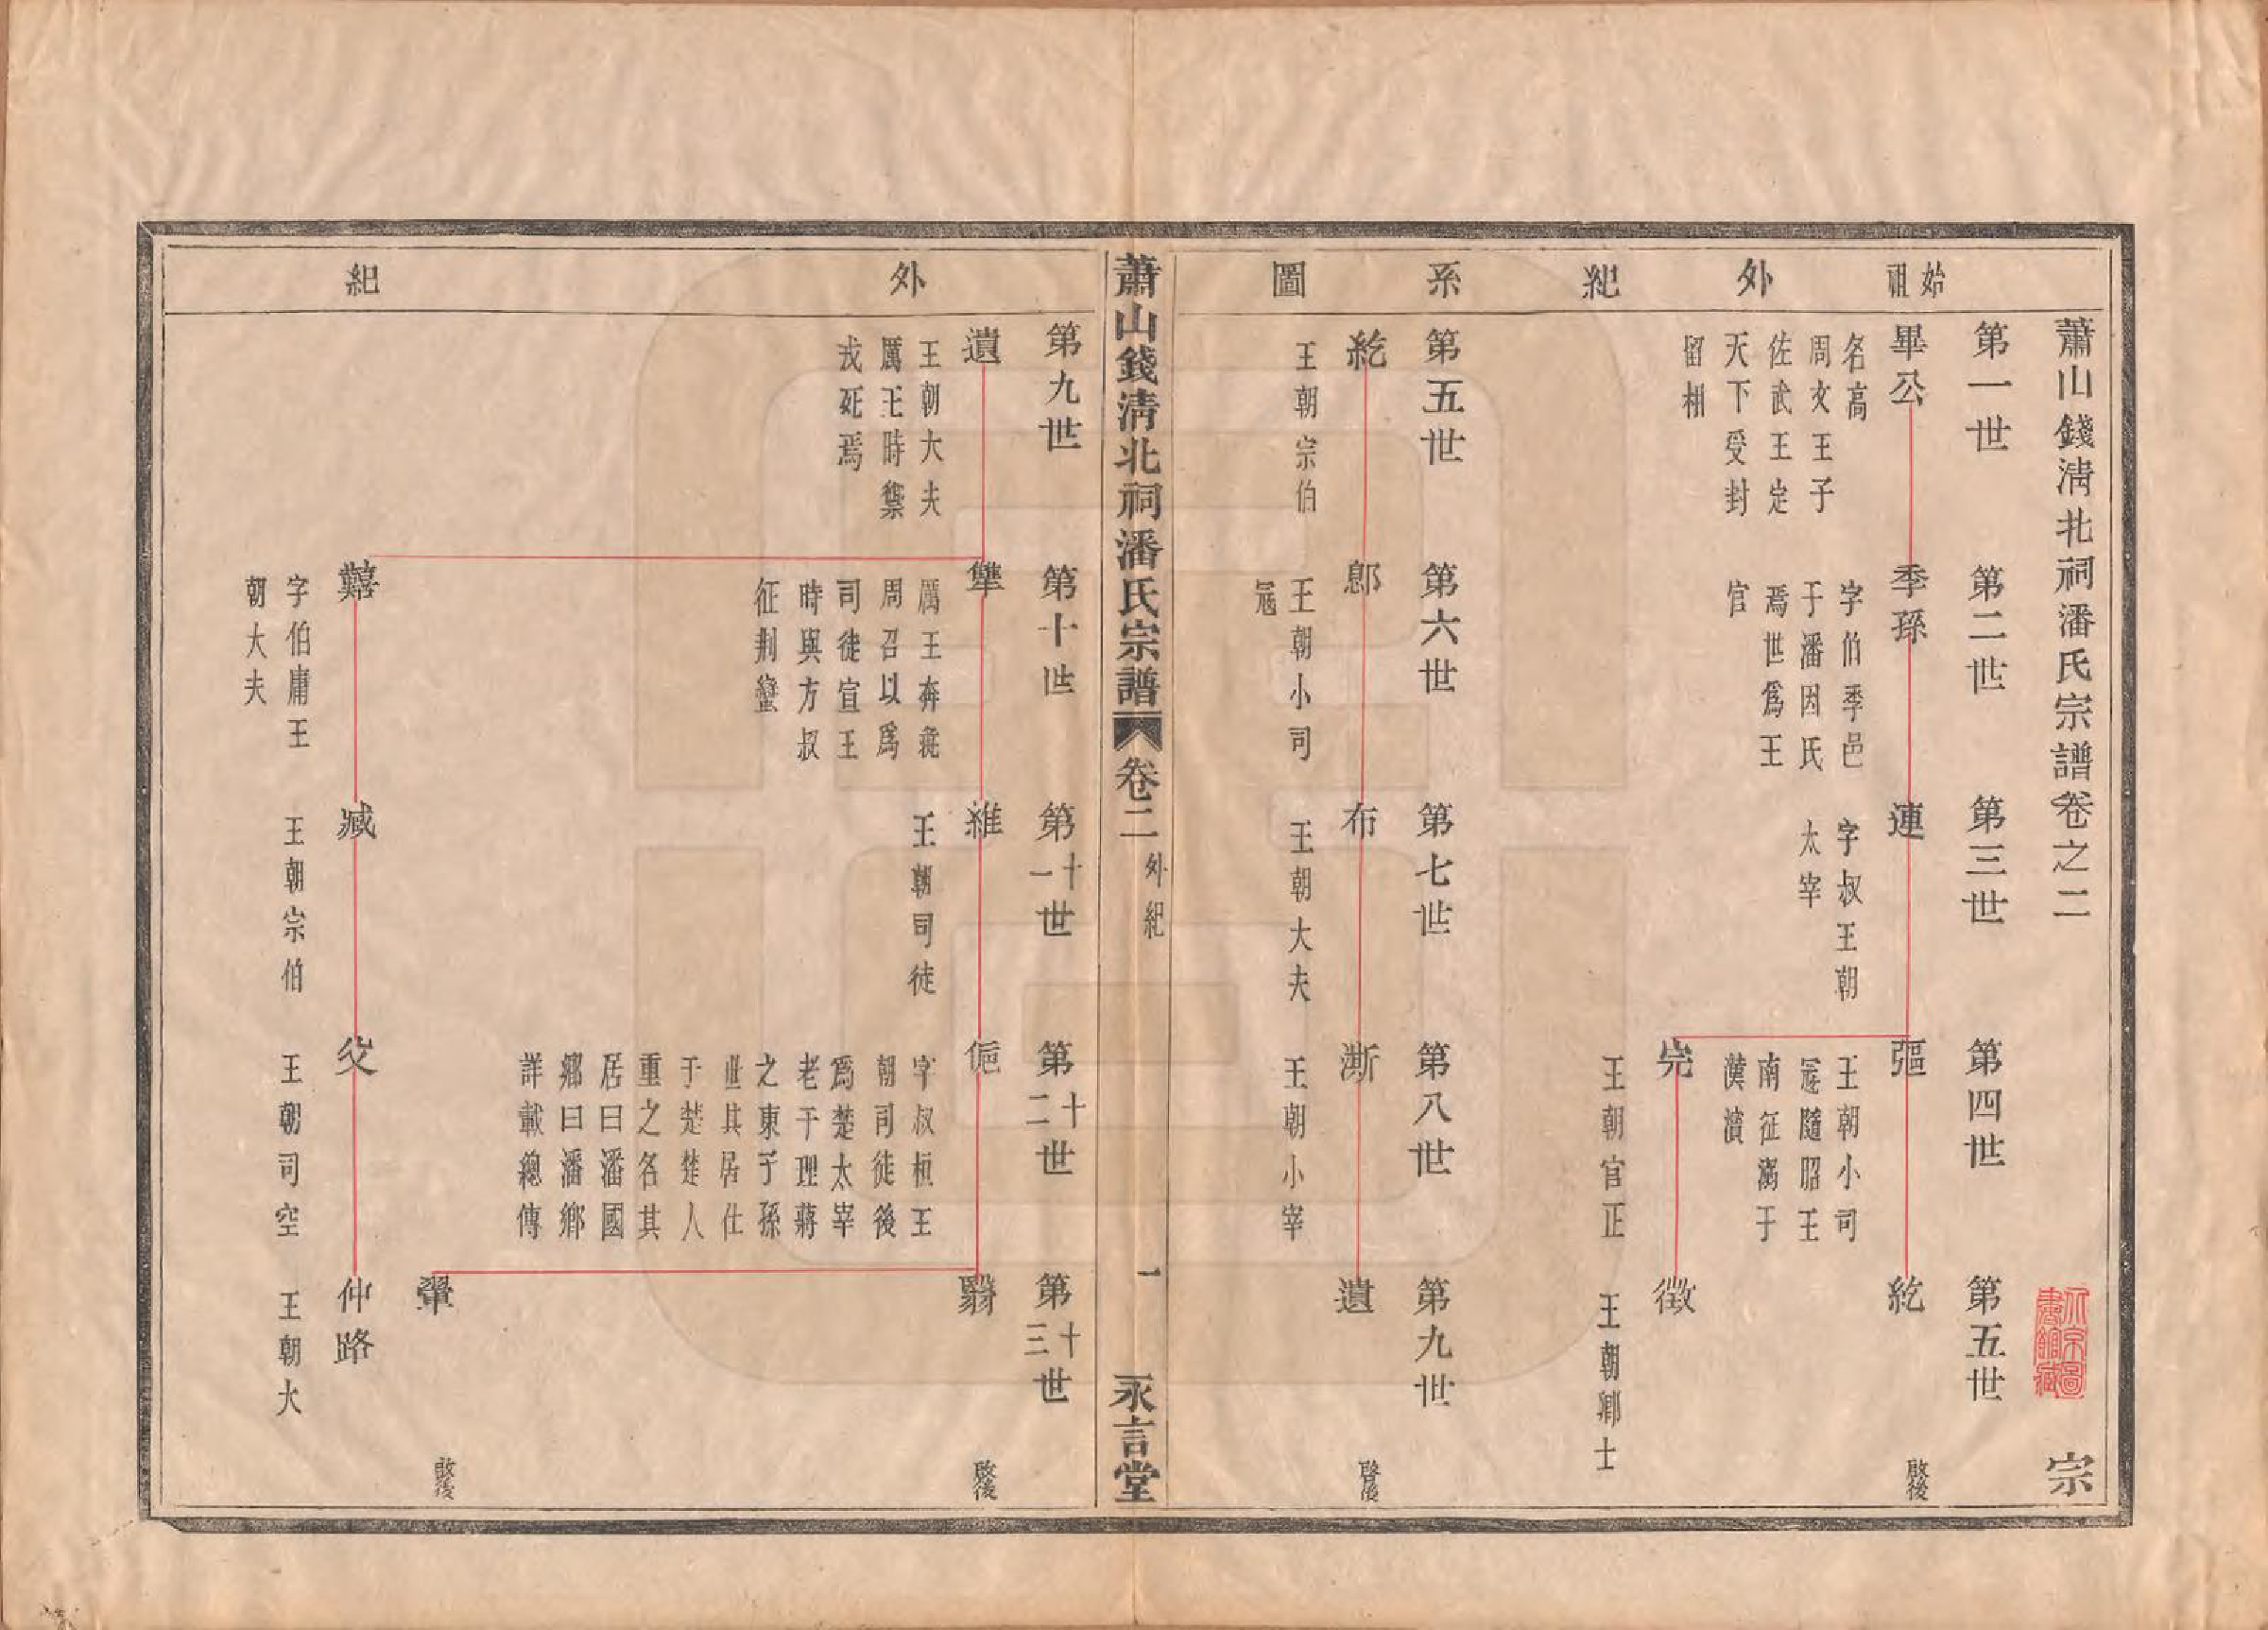 蕭山錢淸北祠潘氏宗譜卷之二
宗
始祖
外
紀
系
圖
第一世
畢公
名高
周文王子
佐武王定
天下受封
留相
第二世
季孫
字伯季邑
于潘因氏
焉世爲王
官
第三世
連
字叔王朝
太宰
第四世
彄
王朝小司
寇隨昭王
南征溺于
漢濱
完
王朝官正
第五世
紇
啟後
徵
王朝卿士
第五世
紇
王朝宗伯
第六世
郎
王朝小司
寇
第七世
布
王朝大夫
第八世
漸
王朝小宰
第九世
遺
啟後
蕭山錢淸北祠潘氏宗譜
卷二
外紀
一
永言堂
外
紀
第九世
遺
王朝大夫
厲王時
戎死焉
第十世
厲王奔彘
周召以爲
司徒宣王
時與方叔
征荆蠻
字伯庸王
朝大夫
第十一世
維
王朝司徒
臧
王朝宗伯
第十二世
字叔桓王
朝司徒後
爲楚太宰
老于理蔣
之東子孫
世其居仕
于楚楚人
重之名其
居曰潘國
鄕曰潘鄕
詳載總傳
王朝司空
第十三世
翳
啟後
翬
啟後
仲路
王朝大